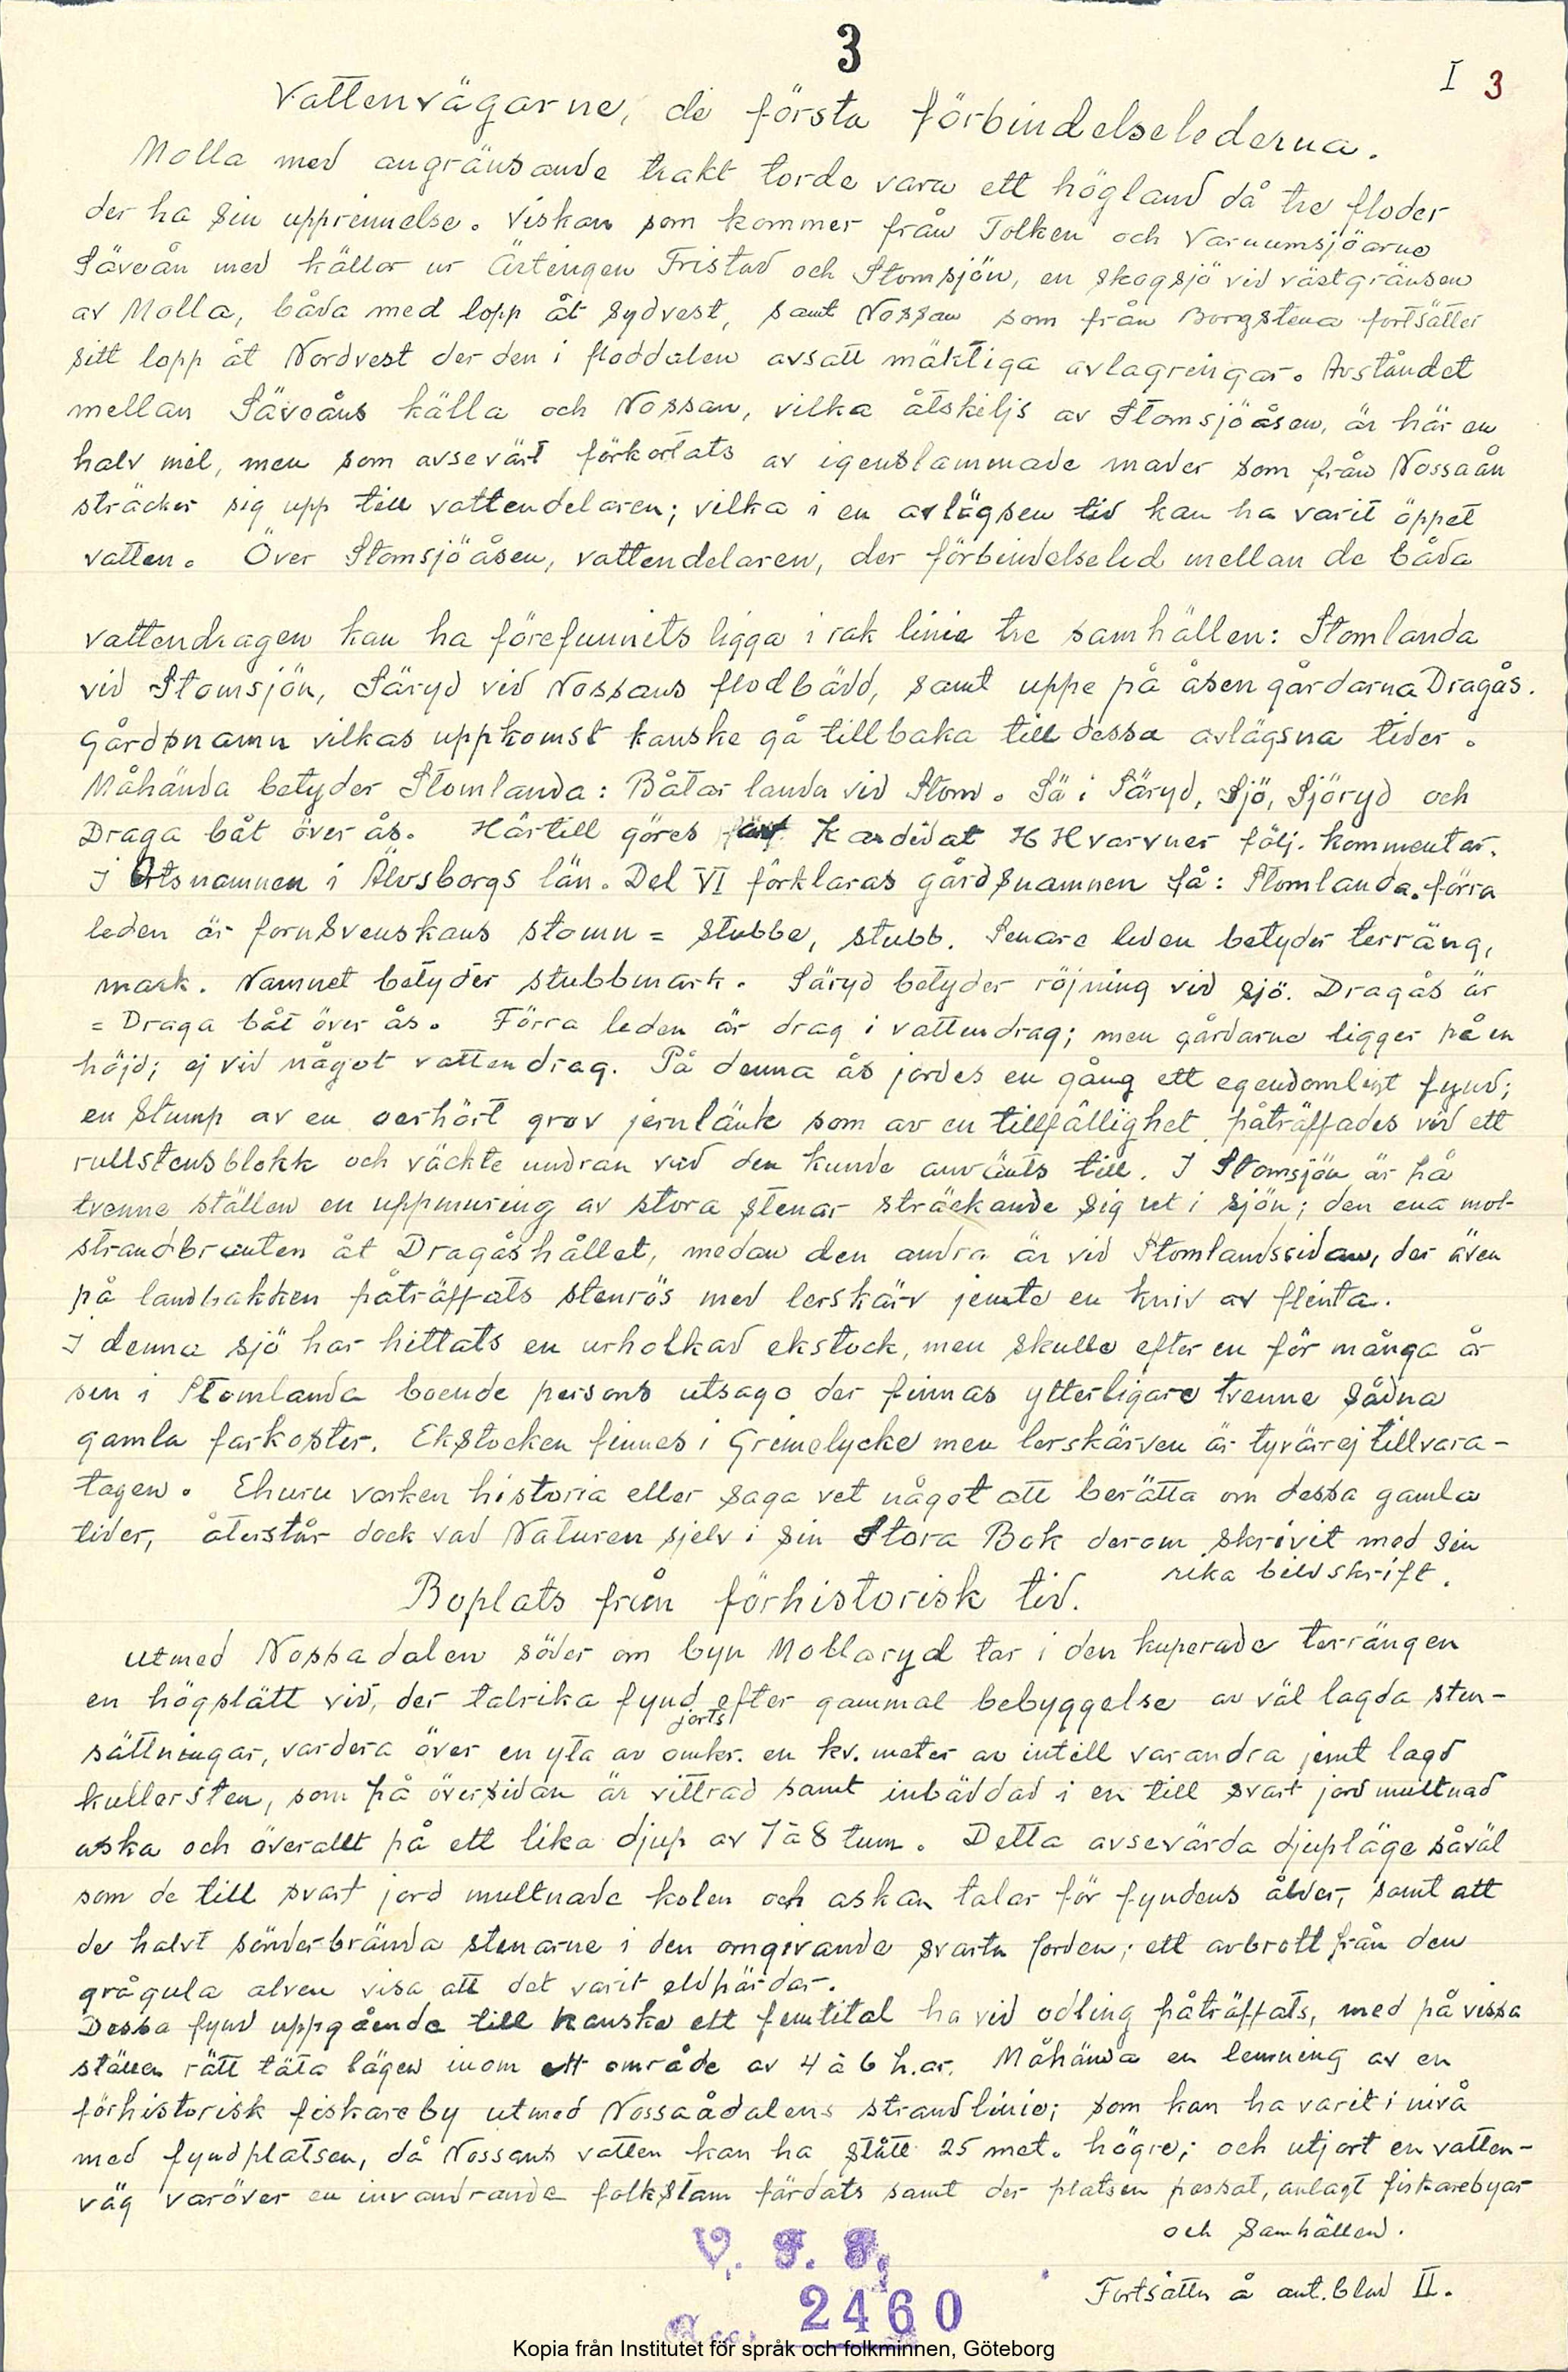 3
I 3
Vattenvägarne, de första förbindelselederna.
Molla med angränsande trakt torde vara ett högland då tre floder
der ha sin upprinnelse. Viskan som kommer från Tolken och Varnumsjöarne
Säveån med källor ur Ärtingen Fristad och Stomsjön, en skogsjö vid västgränsen
av Molla, båda med lopp åt sydvest, samt Nossan som från Borgstena fortsätter
sitt lopp åt Nordvest der den i floddalen avsatt mäktiga avlagringar. Avståndet
mellan Säveåns källa och Nossan, vilka åtskiljs av Stomsjöåsen, är här en
halv mil, men som avsevärt förkortats av igenslammade mader som från Nossaån
sträcker sig upp till vattendelaren; vilka i en avlägsen tid kan ha varit öppet
vatten. Över Stomsjöåsen, vattendelaren, der förbindelseled mellan de båda
vattendragen kan ha förefunnits ligga i rak linie tre samhällen: Stomlanda
vid Stomsjön, Säryd vid Nossans flodbädd, samt uppe på åsen gårdarna Dragås.
Gårdsnamn vilkas uppkomst kanske gå tillbaka till dessa avlägsna tider.
Måhända betyder Stomlanda: Båtar landa vid Stom. Sä i Säryd, Sjö, Sjöryd och
Draga båt över ås. Härtill göres Kandidat H Hvarvner följ. kommentar.
I Ortsnamnen i Älvsborgs län. Del VI förklaras gårdsnamnen så: Stomlanda. förra
leden är fornsvenskans stomn = stubbe, stubb. Senare leden betyder terräng,
mark. Namnet betyder stubbmark. Säryd betyder röjning vid sjö. Dragås är
= Draga båt över ås. Förra leden är drag i vattendrag; men gårdarne ligger på en
höjd; ej vid något vattendrag. På denna ås jordes en gång ett egendomligt fynd;
en stump av en oerhört grov jernlänk som av en tillfällighet påträffades vid ett
rullstensblokk och väckte undran vad den kunde använts till. I Stomsjön är på
tvenne ställen en uppmuring av stora stenar sträckande sig ut i sjön; den ena mot
strandbranten åt Dragåshållet, medan den andra är vid Stomlandssidan, der även
på landbakken påträffats stenrös med lerskärv jemte en kniv av flinta.
I denna sjö har hittats en urholkad ekstock, men skulle efter en för många år
sen i Stomlanda boende persons utsago der finnas ytterligare tvenne sådna
gamla farkoster. Ekstocken finnes i Grimelycke men lerskärven är tyvärr ej tillvara-
tagen. Ehuru varken historia eller saga vet något att berätta om dessa gamla
tider, återstår dock vad Naturen sjelv i sin Stora Bok derom skrivit med sin
rika bildskrift.
Boplats från förhistorisk tid.
Utmed Nossadalen söder om byn Mollaryd tar i den kuperade terrängen
en högslätt vid, der talrika fynd jorts efter gammal bebyggelse av väl lagda sten-
sättningar, vardera över en yta av omkr. en kv. meter av intill varandra jemt lagd
kullersten, som på översidan är vittrad samt inbäddad i en till svart jord multnad
aska och överallt på ett lika djup av 7 à 8 tum. Detta avsevärda djupläge såväl
som de till svart jord multnade kolen och askan talar för fyndens ålder, samt att
de halvt sönderbrända stenarne i den omgivande svarta jorden; ett avbrott från den
grågula alven visa att det varit eldhärdar.
Dessa fynd uppgående till kanske ett femtital ha vid odling påträffats, med på vissa
ställen rätt täta lägen inom ett område av 4 à 6 h.ar. Måhända en lemning av en
förhistorisk fiskareby utmed Nossaådalens strandlinie; som kan ha varit i nivå
med fyndplatsen, då Nossans vatten kan ha stått 25 met. högre; och utjort en vatten-
väg varöver en invandrande folkstam färdats samt der platsen passat, anlagt fiskarebyar
och samhällen.
Fortsätter å ant. blad II.
V. F. F.
Acc: 2460
Kopia från Institutet för språk och folkminnen, Göteborg